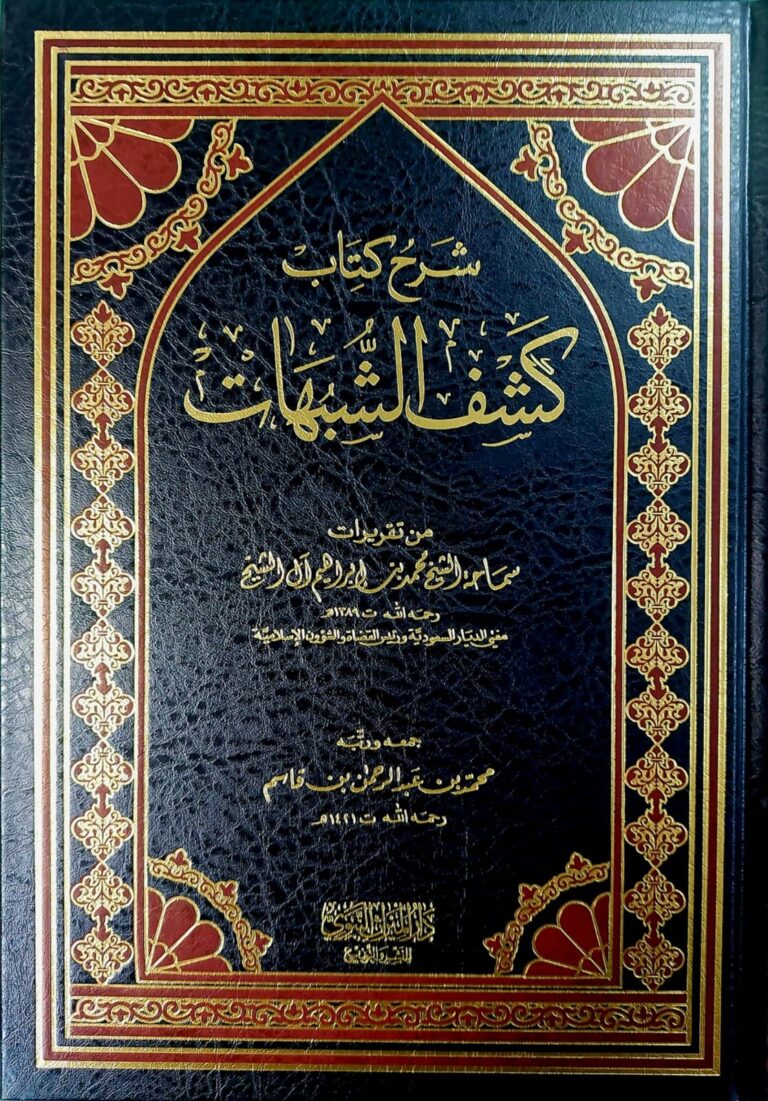 شرح كتاب
كشف الشبهات
من تقريرات
سماحة الشيخ محمد بن إبراهيم آل الشيخ
رحمه الله ت ١٣٨٩هـ
مفتي الديار السعودية ورئيس القضاة والشؤون الإسلامية
جمعه ورتبه
محمد بن عبد الرحمن بن قاسم
رحمه الله ت ١٤٢١هـ
دار الميراث النبوي
للنشر والتوزيع